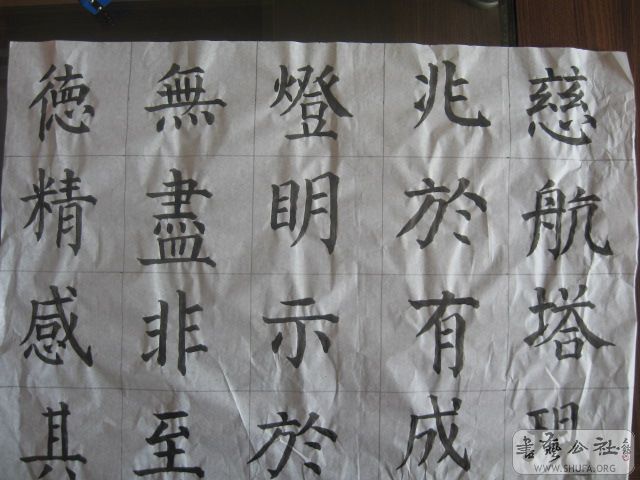 慈航塔現
兆於有成
燈明示於
無盡非至
德精感其
書藝公社
WWW.SHUFA.ORG